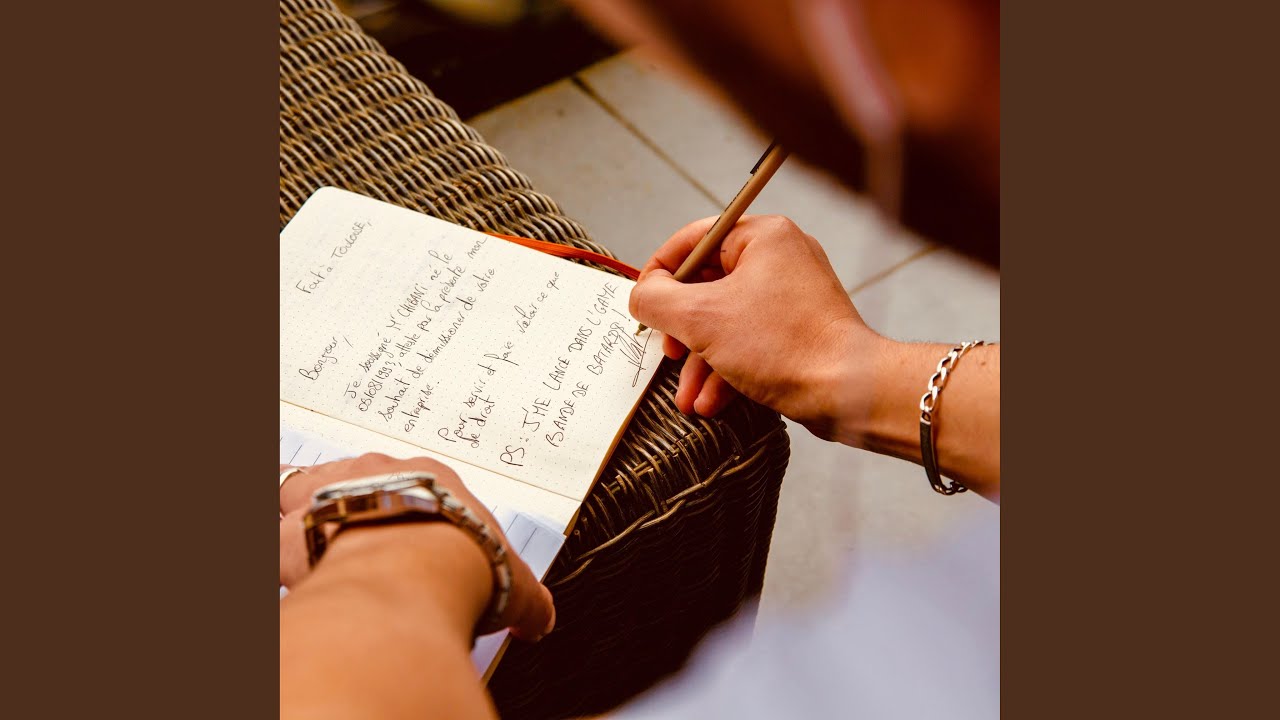 Fait à TOULOUSE,
Bonjour,
Je soussigné Mr CHIBANI né le
03/08/1993, atteste par la présente mon
souhait de démissionner de votre
entreprise.
Pour servir et faire valoir ce que
de droit
PS: J'ME LANCE DANS L'GAME
BANDE DE BATARDS!